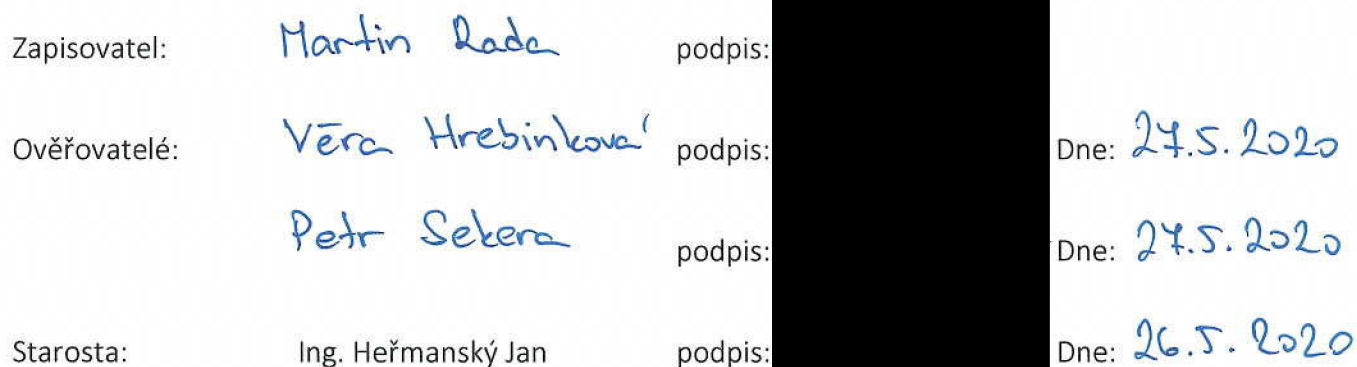 Zapisovatel: Martin Rada podpis:
Ověřovatelé: Věra Hrebinková podpis: Dne: 27.5.2020
Petr Sekera podpis: Dne: 27.5.2020
Starosta: Ing. Heřmanský Jan podpis: Dne: 26.5.2020